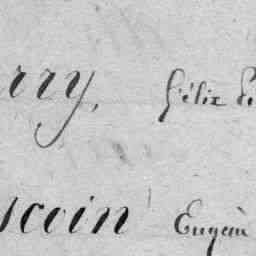 rry, Félix
scoin Eugèn